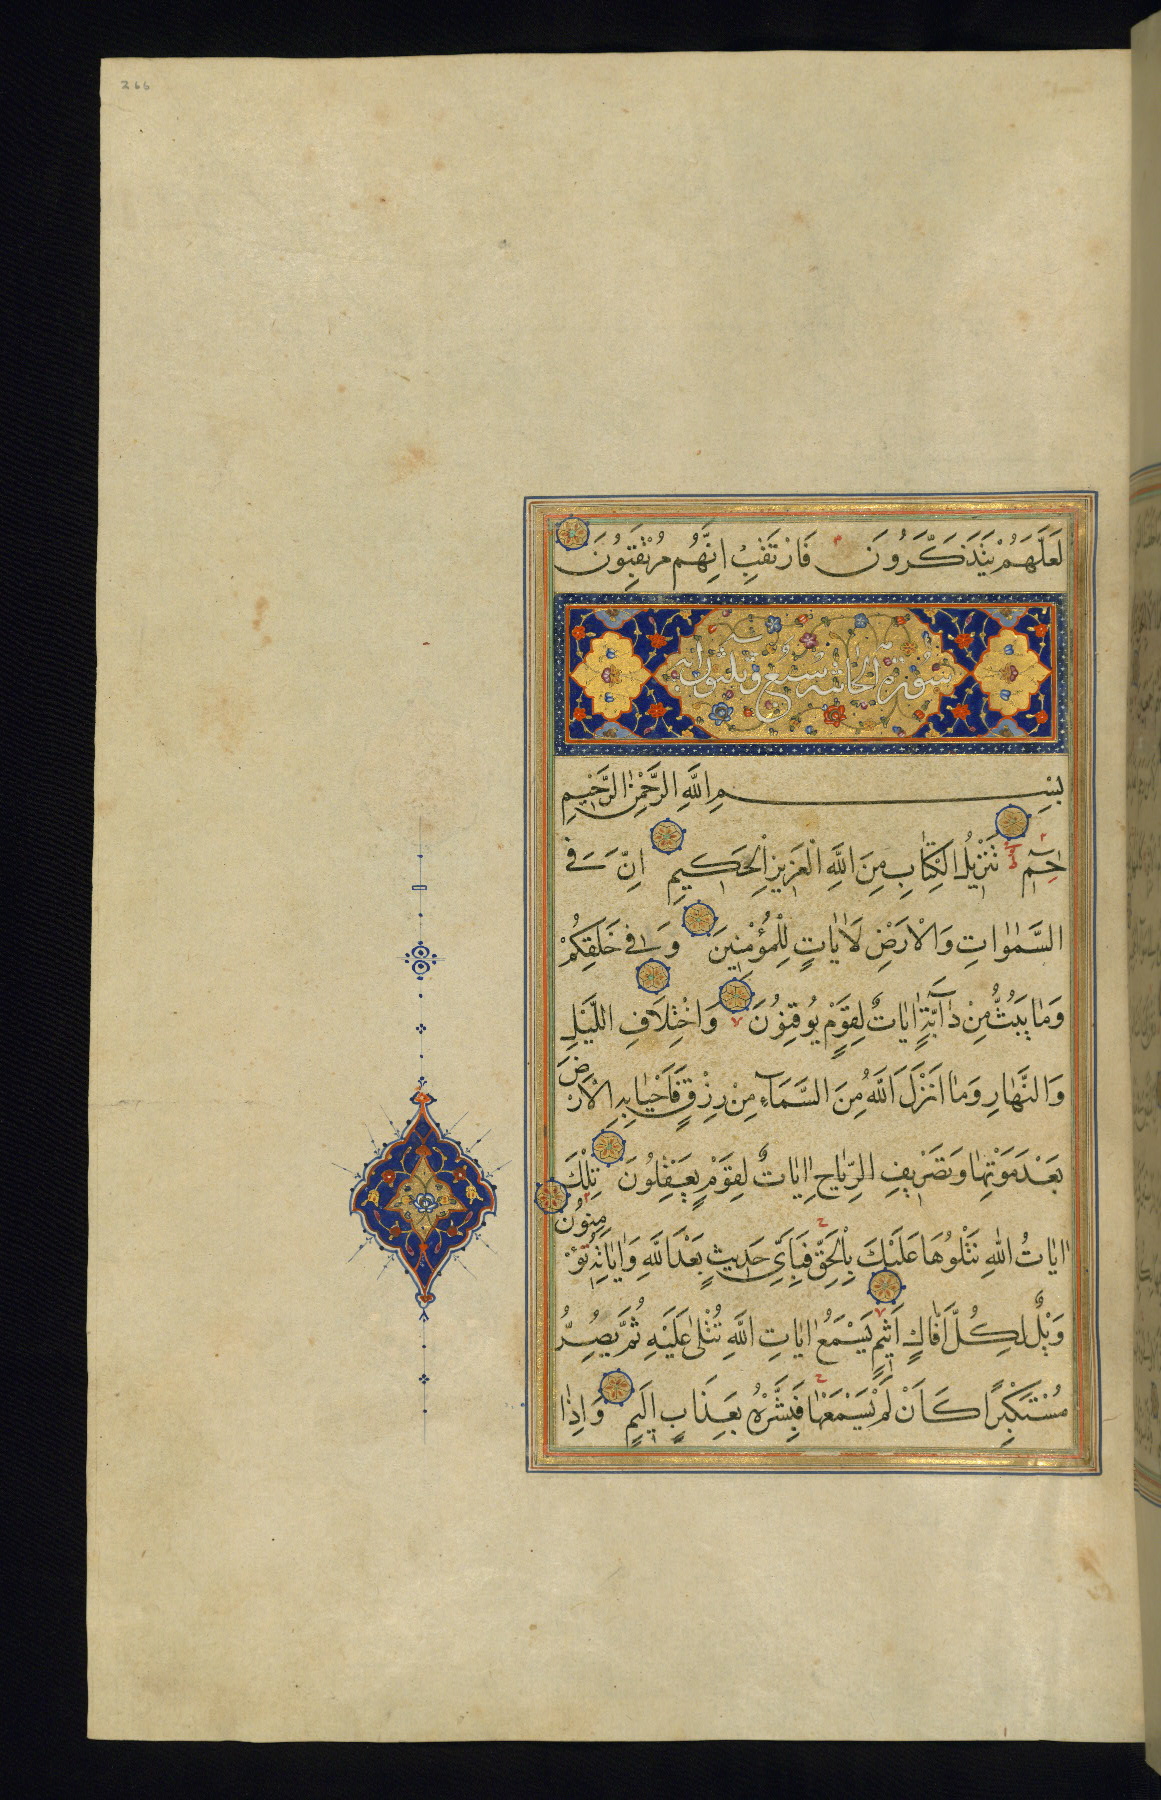 266
لَعَلَّهُمْ يَتَذَكَّرُونَ فَارْتَقِبْ اِنَّهُمْ مُرْتَقِبُونَ
سورة الجاثية سبع وثلثون اية
بِسْمِ اللَّهِ الرَّحْمٰنِ الرَّحِيمِ
حٰمٓ تَنْزِيلُ الْكِتَابِ مِنَ اللَّهِ الْعَزِيزِ الْحَكِيمِ اِنَّ فِي
السَّمٰوَاتِ وَالْاَرْضِ لَاٰيَاتٍ لِلْمُؤْمِنِينَ وَفِي خَلْقِكُمْ
وَمَا يَبُثُّ مِنْ دَآبَّةٍ اٰيَاتٌ لِقَوْمٍ يُوقِنُونَ وَاخْتِلَافِ اللَّيْلِ
وَالنَّهَارِ وَمَا اَنْزَلَ اللَّهُ مِنَ السَّمَآءِ مِنْ رِزْقٍ فَاَحْيَا بِهِ الْاَرْضَ
بَعْدَ مَوْتِهَا وَتَصْرِيفِ الرِّيَاحِ اٰيَاتٌ لِقَوْمٍ يَعْقِلُونَ تِلْكَ
اٰيَاتُ اللَّهِ نَتْلُوهَا عَلَيْكَ بِالْحَقِّ فَبِاَيِّ حَدِيثٍ بَعْدَ اللَّهِ وَاٰيَاتِهِ يُؤْمِنُونَ
وَيْلٌ لِكُلِّ اَفَّاكٍ اَثِيمٍ يَسْمَعُ اٰيَاتِ اللَّهِ تُتْلٰى عَلَيْهِ ثُمَّ يُصِرُّ
مُسْتَكْبِرًا كَاَنْ لَمْ يَسْمَعْهَا فَبَشِّرْهُ بِعَذَابٍ اَلِيمٍ وَاِذَا